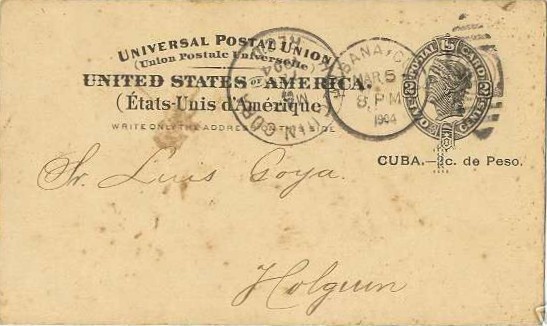 UNIVERSAL POSTAL UNION
(Union Postale Universelle)
UNITED STATES OF AMERICA.
(États-Unis d'Amérique)
WRITE ONLY THE ADDRESS ON THIS SIDE
HABANA, CUBA
MAR 5
8 PM
1904
HOLGUIN CUBA
1904
POSTAL CARD
2 TWO CENTS 2
CUBA.—1c. de Peso.
Sr. Luis Goya.
Holguin